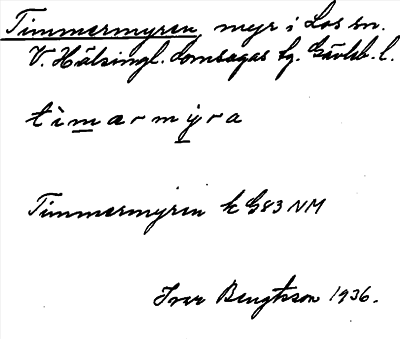 Timmermyren, myr i Los sn.
V. Hälsingl. domsagas tg. Gävleb. l.
timarmyra
Timmermyren k G83 NM
Ivar Bengtsson 1936.